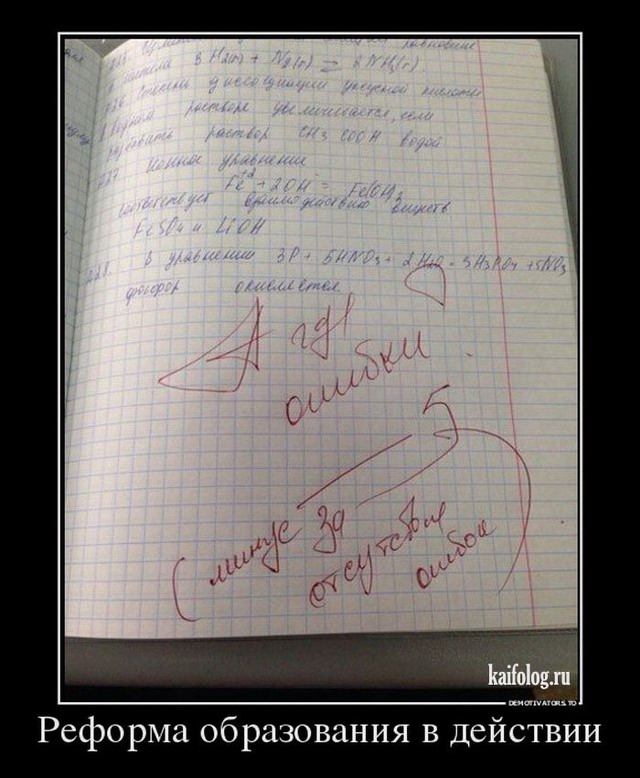 равновесие
3 H2(г) + N2(г) ⇄ 2 NH3(г)
Степень диссоциации уксусной кислоты
в водном растворе увеличивается, если
раствор CH3COOH водой
Ионное уравнение
Fe+2 + 2OH- = Fe(OH)2
соответствует взаимодействию веществ
FeSO4 и LiOH
В уравнении 3P + 5HNO3 + 2H2O = 3H3PO4 + 5NO
фосфор окисляется
А где
ошибки?
5-
(минус за
отсутствие
ошибок)
kaifolog.ru
DEMOTIVATORS.TO
Реформа образования в действии